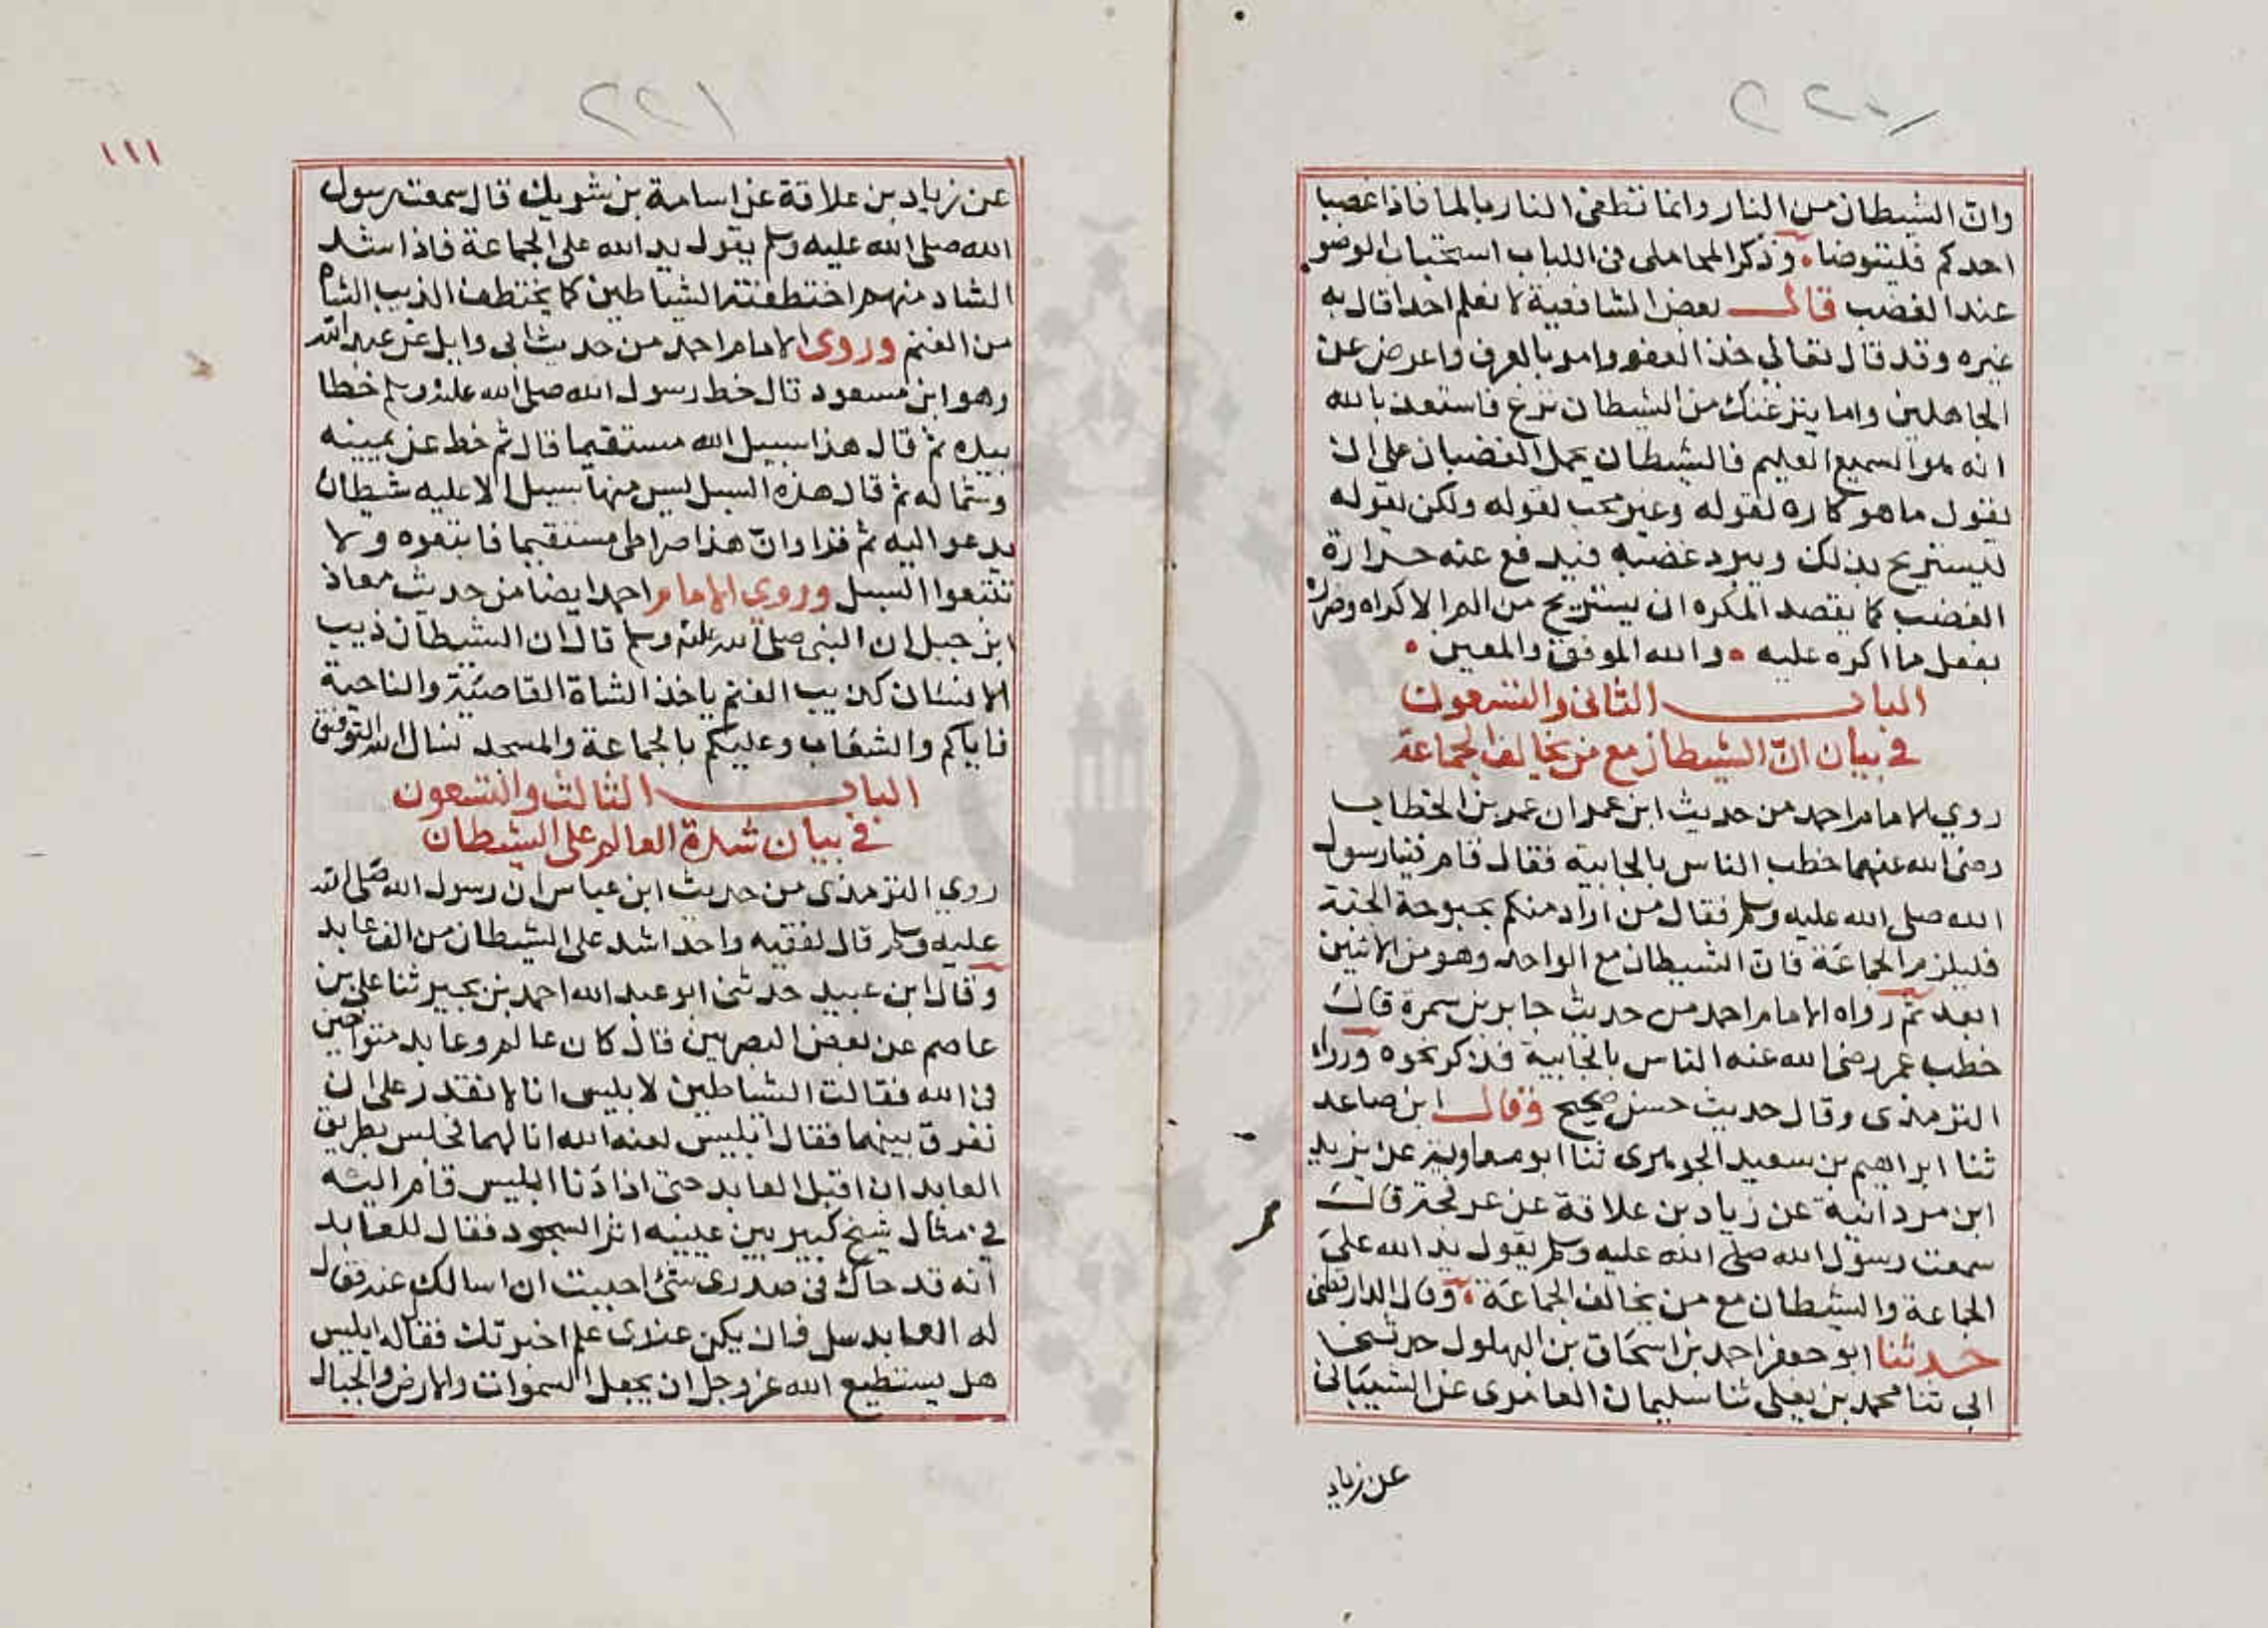 ٢٢٠
وان الشيطان من النار وانما تطفى النار بالما فاذا غضب
احدكم فليتوضا وذكر المحاملى فى اللباب استحباب الوضو
عند الغضب قال بعض الشافعية لا نعلم احدا قال به
غيره وقد قال تعالى خذ العفو وامر بالعرف واعرض عن
الجاهلين واما ينزغنك من الشيطان نزغ فاستعذ بالله
انه هو السميع العليم فالشيطان يحمل الغضبان على ان
يقول ما هو كاره لقوله وغير محب لقوله ولكن لقوله
ليستريح بذلك ويبرد غضبه فيدفع عنه حرارة
الغضب كما يقصد المكره ان يستريح من الم الاكراه وضرره
بفعل ما اكره عليه والله الموفق والمعين
الباب الثانى والتسعون
فى بيان ان الشيطان مع من يخالف الجماعة
روي الامام احمد من حديث ابن عمر ان عمر بن الخطاب
رضى الله عنهما خطب الناس بالجابية فقال قام فينا رسول
الله صلى الله عليه وسلم فقال من اراد منكم بحبوحة الجنة
فليلزم الجماعة فان الشيطان مع الواحد وهو من الاثنين
ابعد ثم رواه الامام احمد من حديث جابر بن سمرة قال
خطب عمر رضى الله عنه الناس بالجابية فذكر نحوه ورواه
الترمذى وقال حديث حسن صحيح وقال ابن صاعد
ثنا ابراهيم بن سعيد الجوهرى ثنا ابو معاوية عن يزيد
ابن مردانبة عن زياد بن علاقة عن عرفجة قال
سمعت رسول الله صلى الله عليه وسلم يقول يد الله على
الجماعة والشيطان مع من يخالف الجماعة وقال الدارقطنى
حدثنا ابو جعفر احمد بن اسحاق بن البهلول حدثنى
ابى ثنا محمد بن يعلى ثنا سليمان العامرى عن الشيبانى
عن زياد
٢٢١
١١١
عن زياد بن علاقة عن اسامة بن شريك قال سمعت رسول
الله صلى الله عليه وسلم يقول يد الله على الجماعة فاذا اشذ
الشاد منهم اختطفته الشياطين كما يختطف الذيب الشاة
من الغنم وروى الامام احمد من حديث ابى وايل عن عبد الله
وهو ابن مسعود قال خط رسول الله صلى الله عليه وسلم خطا
بيده ثم قال هذا سبيل الله مستقيما قال ثم خط عن يمينه
وشماله ثم قال هذه السبل ليس منها سبيل الا عليه شيطان
يدعو اليه ثم قرا وان هذا صراطى مستقيما فاتبعوه ولا
تتبعوا السبل وروى الامام احمد ايضا من حديث معاذ
ابن جبل ان النبى صلى الله عليه وسلم قال ان الشيطان ذيب
الانسان كذيب الغنم ياخذ الشاة القاصية والناحية
فاياكم والشعاب وعليكم بالجماعة والمسجد نسال الله التوفيق
الباب الثالث والتسعون
فى بيان شدة العالم على الشيطان
روي الترمذى من حديث ابن عباس ان رسول الله صلى الله
عليه وسلم قال لفقيه واحد اشد على الشيطان من الف عابد
وقال ابن عبيد حدثنى ابو عبد الله احمد بن بجير ثنا على بن
عاصم عن بعض البصريين قال كان عالم وعابد متواخين
فى الله فقالت الشياطين لابليس انا لا نقدر على ان
نفرق بينهما فقال ابليس لعنه الله انا لهما فجلس بطريق
العابد ان اقبل العابد حتى اذا دنا ابليس قام اليه
فى مثال شيخ كبير بين عينيه اثر السجود فقال للعابد
انه قد حاك فى صدرى شئ احببت ان اسالك عنه فقال
له العابد سل فان يكن عندى علم اخبرتك فقال له ابليس
هل يستطيع الله عز وجل ان يجعل السموات والارض والجبال